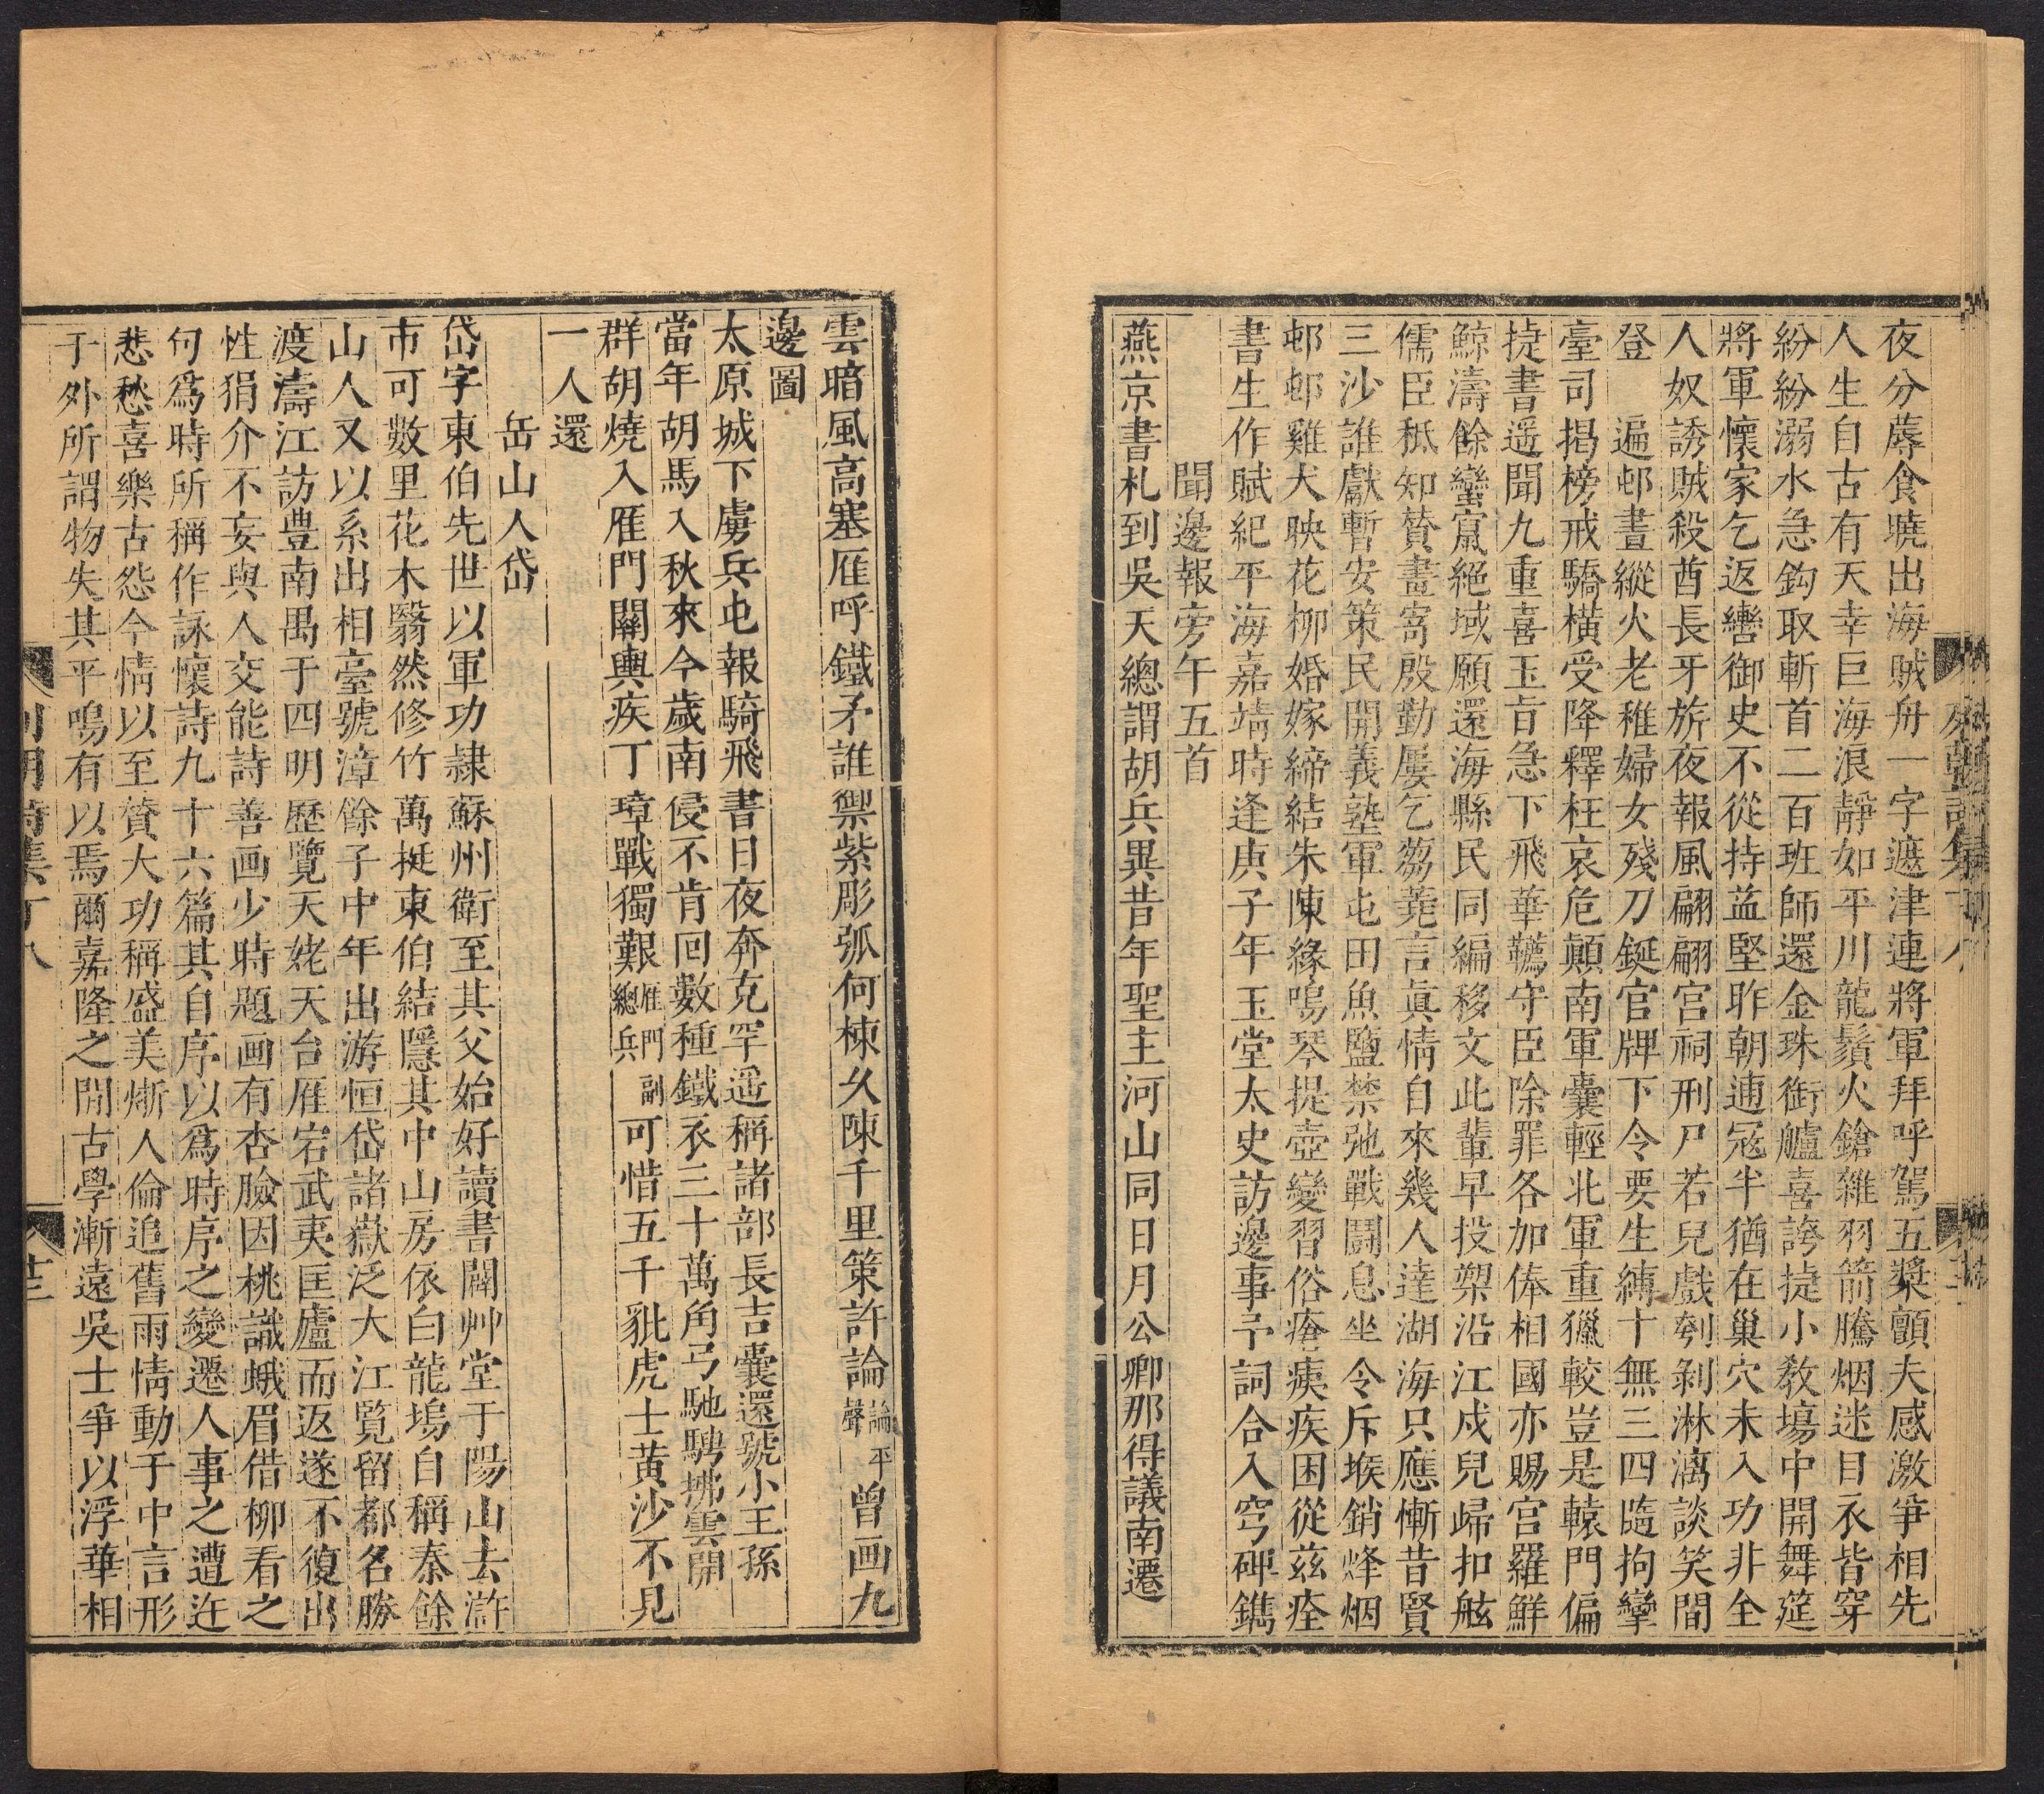 夜分蓐食曉出海賊舟一字遮津連將軍拜呼駕五槳顫夫感激爭相先
人生自古有天幸巨海浪靜如平川龍鬚火鎗雜羽箭騰烟迷目衣皆穿
紛紛溺水急鈎取斬首二百班師還金珠銜艫喜誇捷小教塲中開舞筵
將軍懷家乞返轡御史不從持益堅昨朝逋冦半猶在巢穴未入功非全
人奴誘賊殺酋長牙旂夜報風翩翩宮祠刑尸若兒戲刳剝淋漓談笑間
登 遍邨晝縱火老稚婦女殘刀鋌官牌下令要生縛十無三四隨拘攣
臺司揭榜戒驕橫受降釋枉哀危顛南軍囊輕北軍重獵較豈是轅門偏
捷書遥聞九重喜玉㫖急下飛華韉守臣除罪各加俸相國亦賜宮羅鮮
鯨濤餘蠻窟絕域願還海縣民同編移文此輩早投槊沿江戍兒歸扣舷
儒臣秪知贊畫寄殷勤屢乞芻蕘言眞情自來幾人達湖海只應慚昔賢
三沙誰獻暫安策民開義塾軍屯田魚鹽禁弛戰鬬息坐令斥堠銷烽烟
邨邨雞犬映花柳婚嫁締結朱陳緣鳴琴提壺變習俗瘡痍疾困從茲痊
書生作賦紀平海嘉靖時逢庚子年玉堂太史訪邊事予詞合入穹碑鐫
聞邊報旁午五首
燕京書札到吳天總謂胡兵異昔年聖主河山同日月公卿那得議南遷
雲暗風高塞雁呼鐵矛誰禦紫彫弧何棟久陳千里策許論論平聲曾画九
邊圖
太原城下虜兵屯報騎飛書日夜奔克罕遥稱諸部長吉囊還號小王孫
當年胡馬入秋來今歲南侵不肯回數種鐵衣三十萬角弓馳騁拂雲開
群胡燒入雁門關輿疾丁璋戰獨艱雁門副總兵可惜五千豼虎士黄沙不見
一人還
岳山人岱
岱字東伯先世以軍功隷蘇州衛至其父始好讀書闢艸堂于陽山去滸
市可數里花木翳然修竹萬挺東伯結隱其中山房依白龍塢自稱秦餘
山人又以系出相臺號漳餘子中年出游恒岱諸嶽泛大江覽留都名勝
渡濤江訪豊南禺于四明歷覽天姥天台雁宕武夷匡廬而返遂不復出
性狷介不妄與人交能詩善画少時題画有杏臉因桃識蛾眉借柳看之
句爲時所稱作詠懷詩九十六篇其自序以爲時序之變遷人事之遭迕
悲愁喜樂古怨今情以至贊大功稱盛美慚人倫追舊雨情動于中言形
于外所謂物失其平鳴有以焉爾嘉隆之閒古學漸遠吳士爭以浮華相